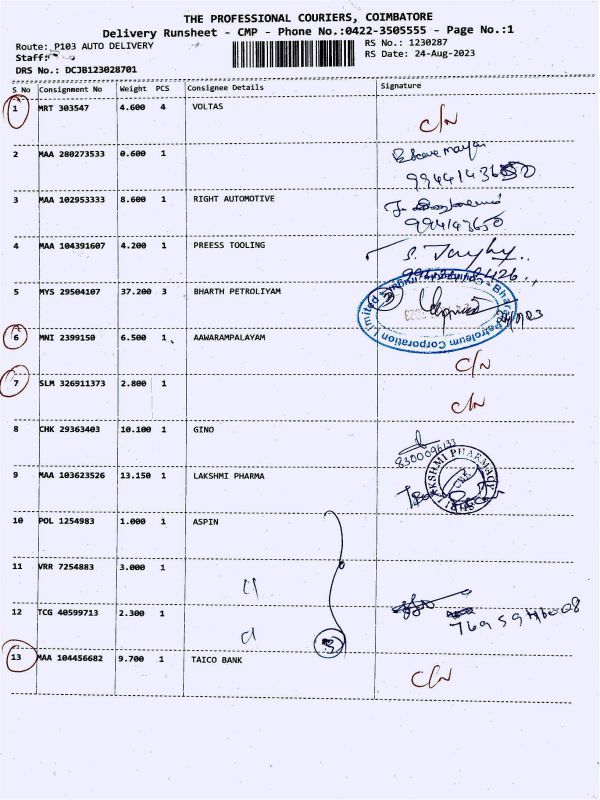 THE PROFESSIONAL COURIERS, COIMBATORE
Delivery Runsheet - CMP - Phone No.:0422-3505555 - Page No.:1
Route: P103 AUTO DELIVERY RS No.: 1230287
Staff: RS Date: 24-Aug-2023
DRS No.: DCJB123028701
S No Consignment No Weight PCS Consignee Details Signature
1 MRT 303547 4.600 4 VOLTAS
C/N
2 MAA 280273533 0.600 1
3 MAA 102953333 8.600 1 RIGHT AUTOMOTIVE
994143650
4 MAA 104391607 4.200 1 PREESS TOOLING
5 MYS 29504107 37.200 3 BHARTH PETROLIYAM
3
Bharat Petroleum Corporation Limited
6 MNI 2399150 6.500 1 AAWARAMPALAYAM
C/N
7 SLM 326911373 2.800 1
C/N
8 CHK 29363403 10.100 1 GINO
8300096133
9 MAA 103623526 13.150 1 LAKSHMI PHARMA
LAKSHMI PHARMACY
10 POL 1254983 1.000 1 ASPIN
11 VRR 7254883 3.000 1
12 TCG 40599713 2.300 1
3
13 MAA 104456682 9.700 1 TAICO BANK
C/N